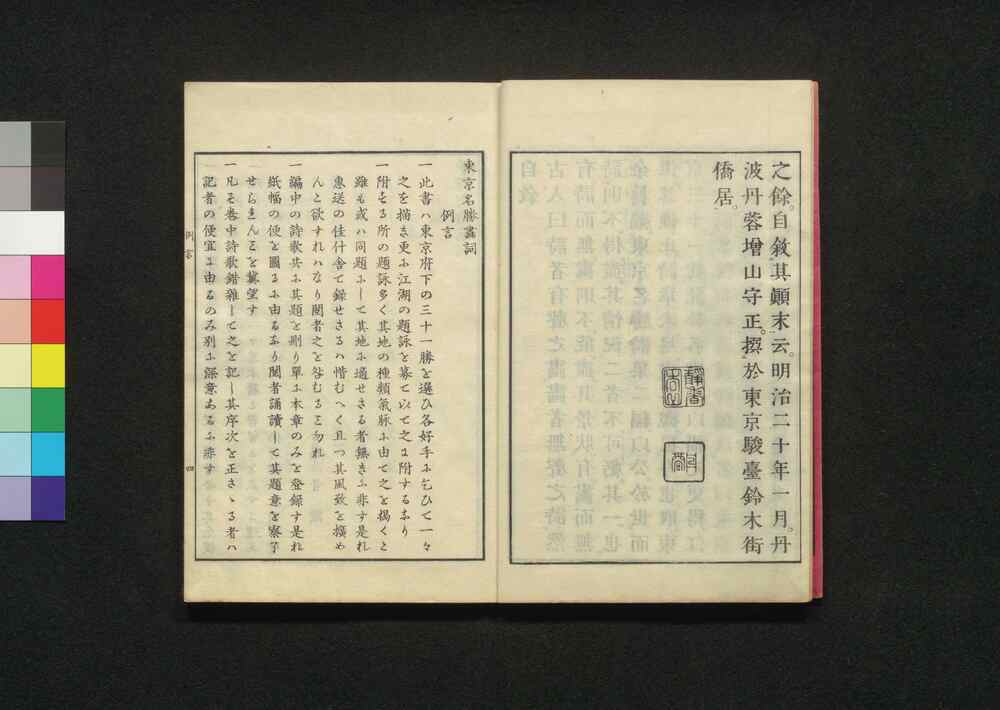 之餘。自敘其顚末云。明治二十年一月。丹
波丹蓉增山守正。撰於東京駿臺鈴木街
僑居。
東京名勝畵詞
例言
一此書ハ東京府下の三十一勝を選ひ各好手ふ乞ひて一々
之を描き更ふ江湖の題詠を募て以て之ふ附するなり
一附する所の題詠多く其地の種類氣脉ふ由て之を揭くと
雖も或ハ同題ふして其地ふ適せさる者無きふ非す是れ
惠送の佳什舍て錄せさるハ惜むへく且つ其風致を損め
んと欲すれハなり閱者之を咎むること勿れ
一編中の詩歌共ふ其題を刪り單ふ本章のみを登錄す是れ
紙幅の便を圖るふ由るなり閱者誦讀して其題意を察了
せられんことを冀望す
一凡そ卷中詩歌錯雜して之を記し其序次を正さゝる者ハ
記者の便宜ふ由るのみ別ふ深意あるふ非す
例言
四